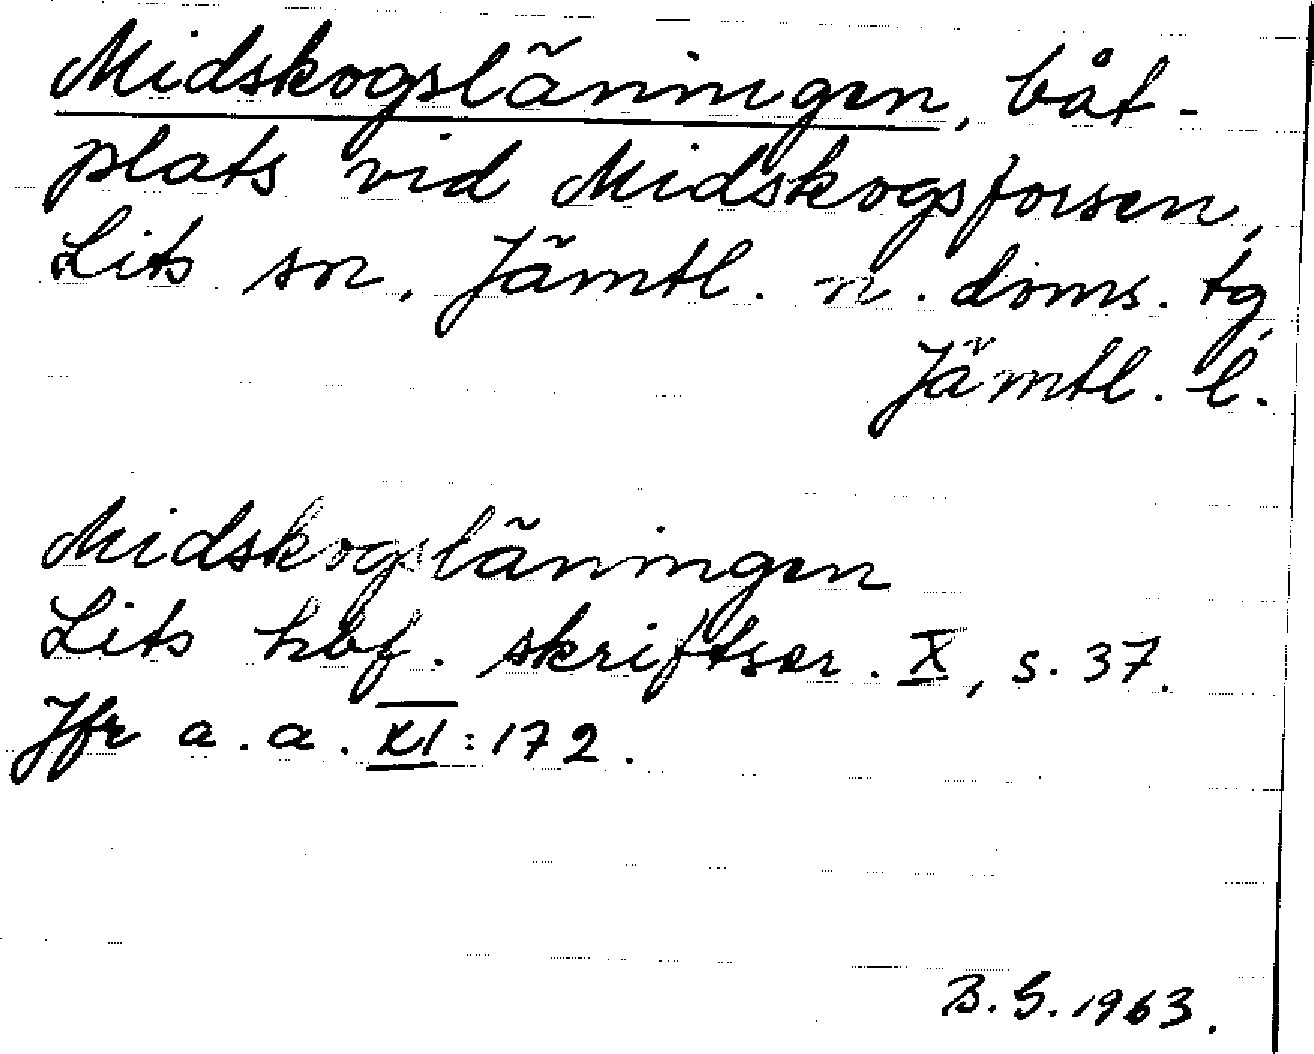 Midskogsläningen, båt-
plats vid Midskogsforsen,
Lits sn, Jämtl. n. doms. tg,
Jämtl. l.
Midskogsläningen
Lits hbf. skriftser. X, s. 37.
Jfr a.a. XI:172.
B.G. 1963.